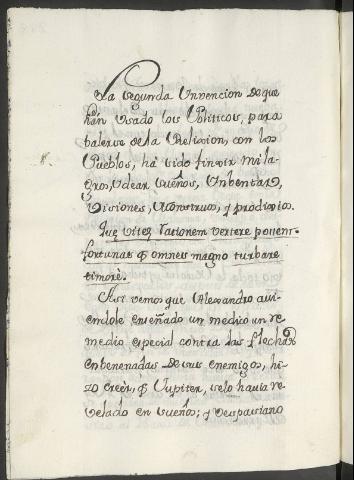 La segunda Unvencion de que
hán Usado los Politicos, para
balerse de la Relixion, con los
Pueblos, há sido finxir mila-
gros, Ydear sueños, Unbentar,
Visiones, Monstruos, y prodixios.
Que vitez rationem vertere ponent
fortunas q̃ omneis magno turbare
timoré.
Asi vemos que Alexandro avi-
endole enseñado un medico un re
medio especial contra las flechas
enbenenadas de sus enemigos, hi-
zo creér, q̃ Jupiter, selo havia re
velado en sueños; y Vespasiano